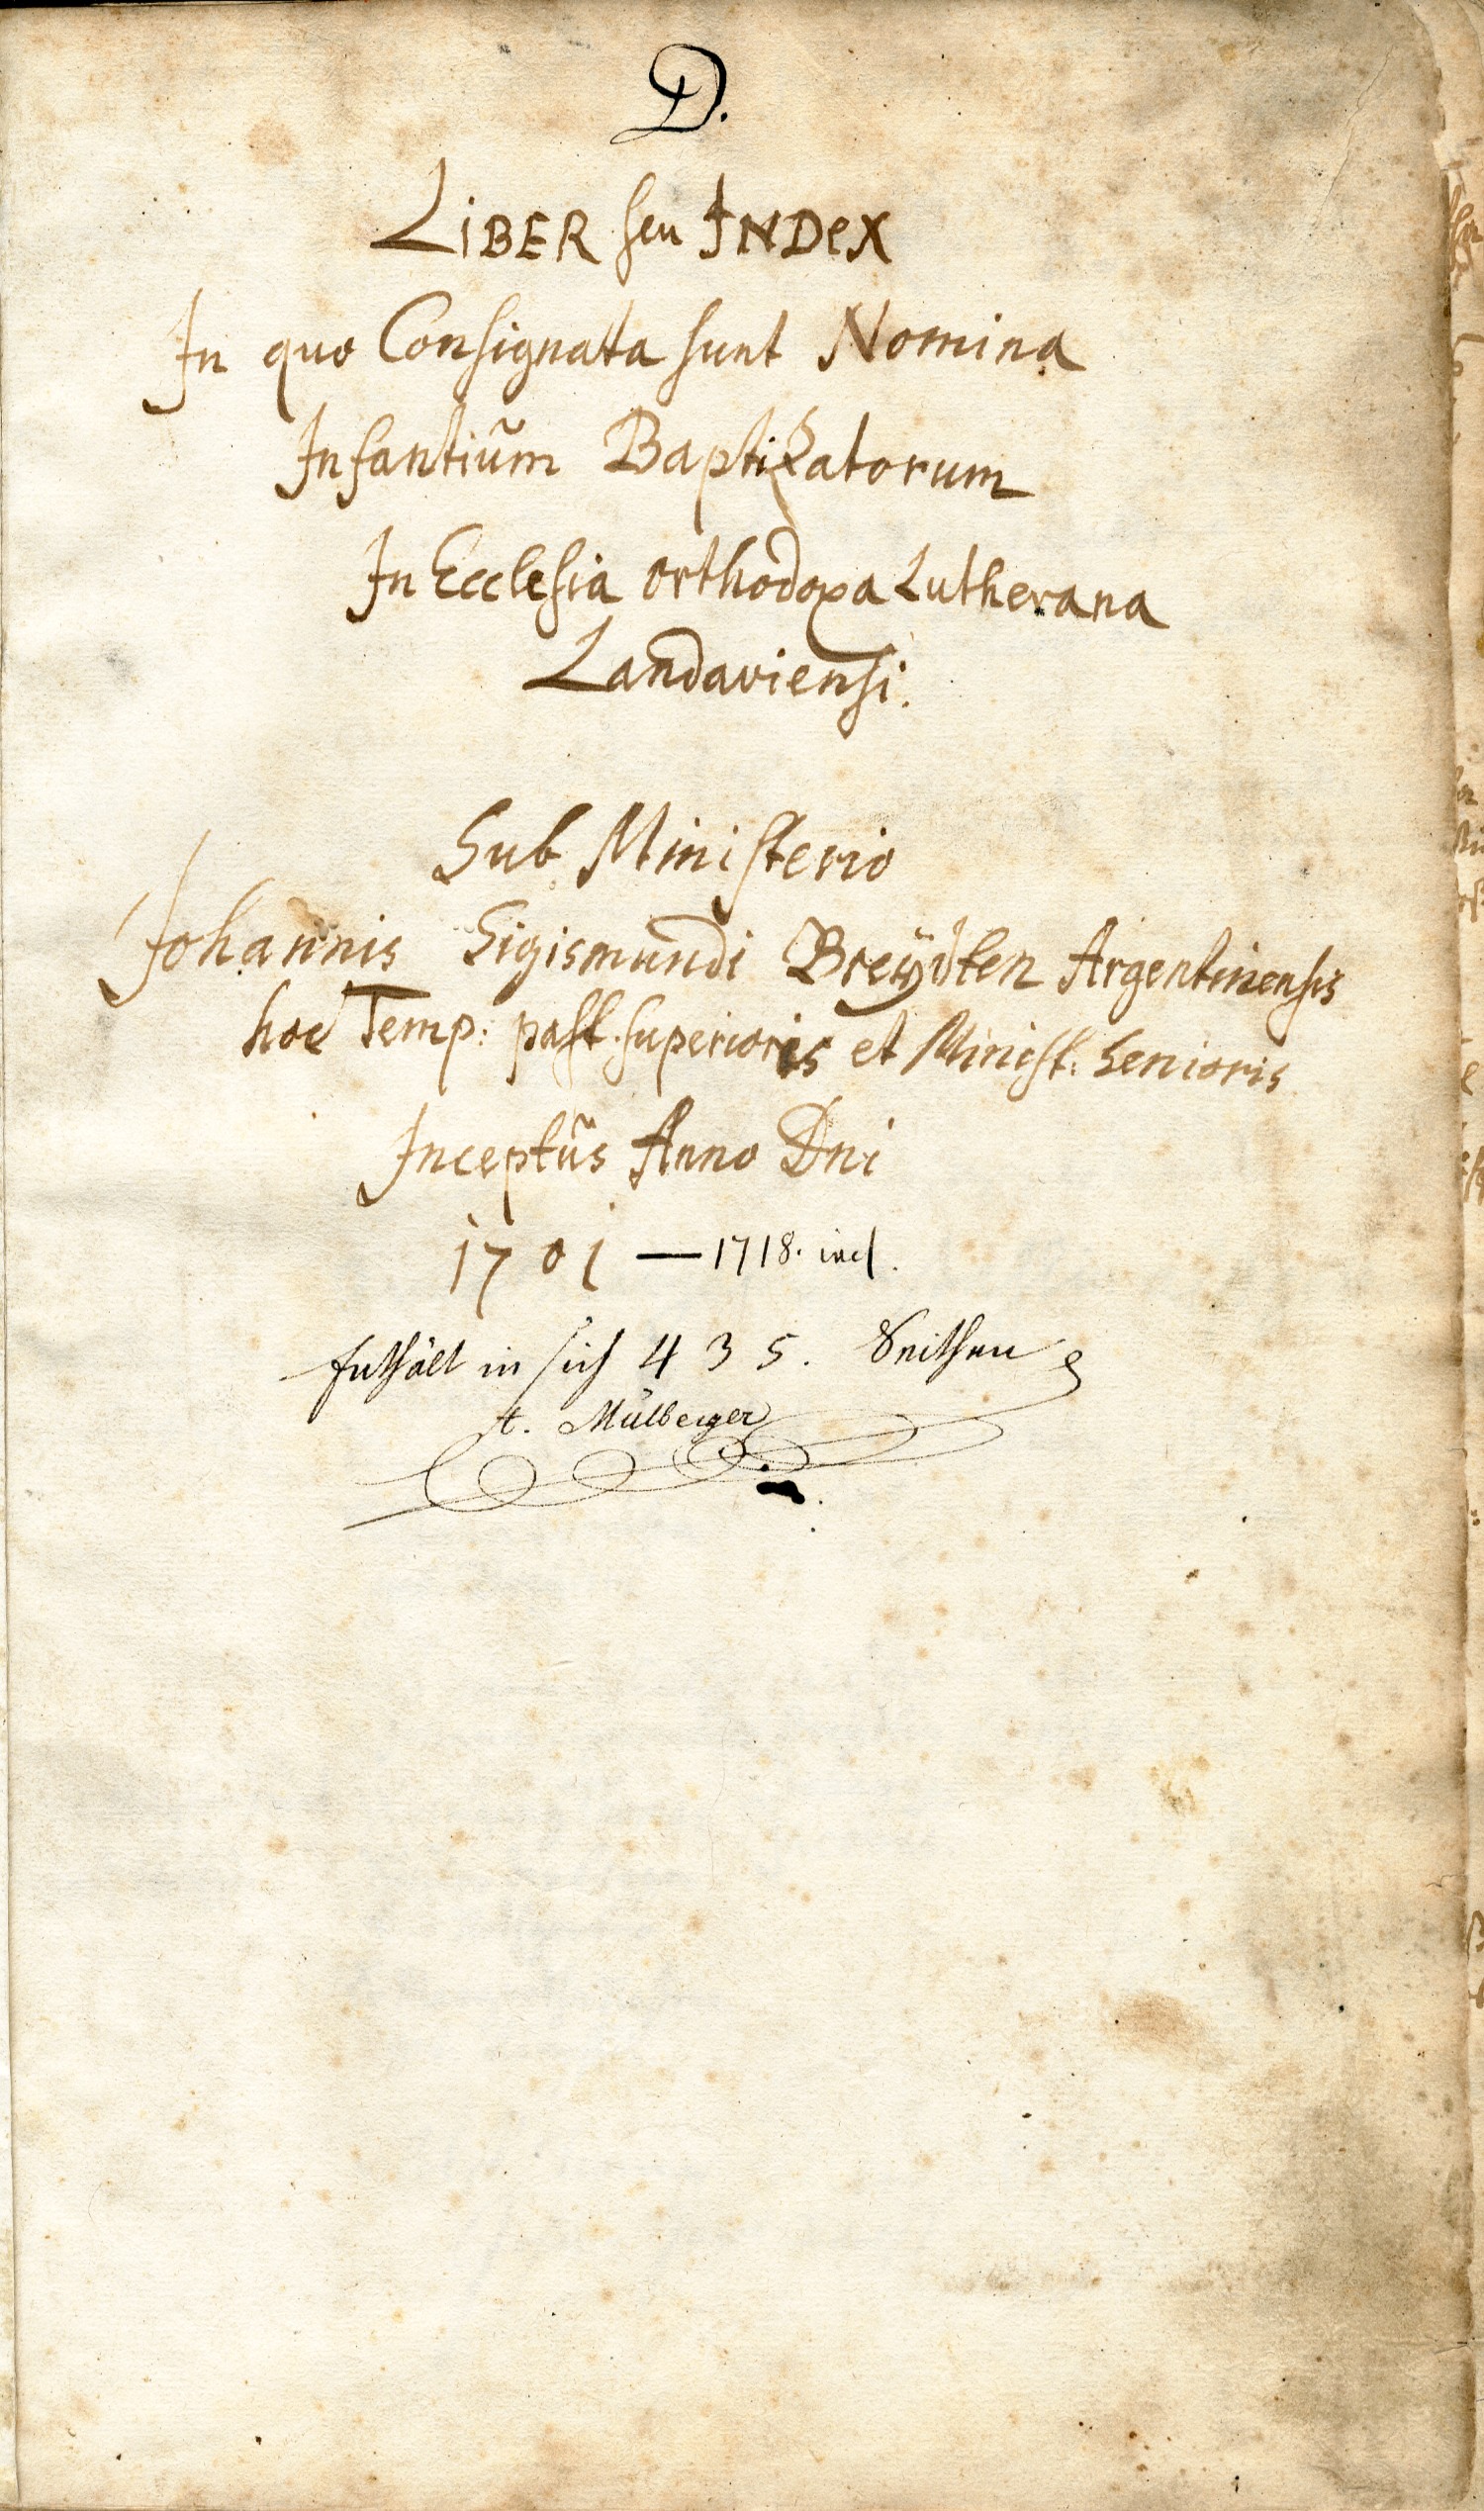 D.
LIBER seu INDEX
In quo Consignata sunt Nomina
Infantium Baptizatorum
In Ecclesia orthodoxa Lutherana
Landaviensi.
Sub Ministerio
Johannis Sigismundi Breÿdten Argentinensis
hoc Temp: past. superioris et Minist. Senioris
Inceptũs Anno Dni
1701 — 1718. incl.
Enthält in sich 435. Seithen
t. Mülberger